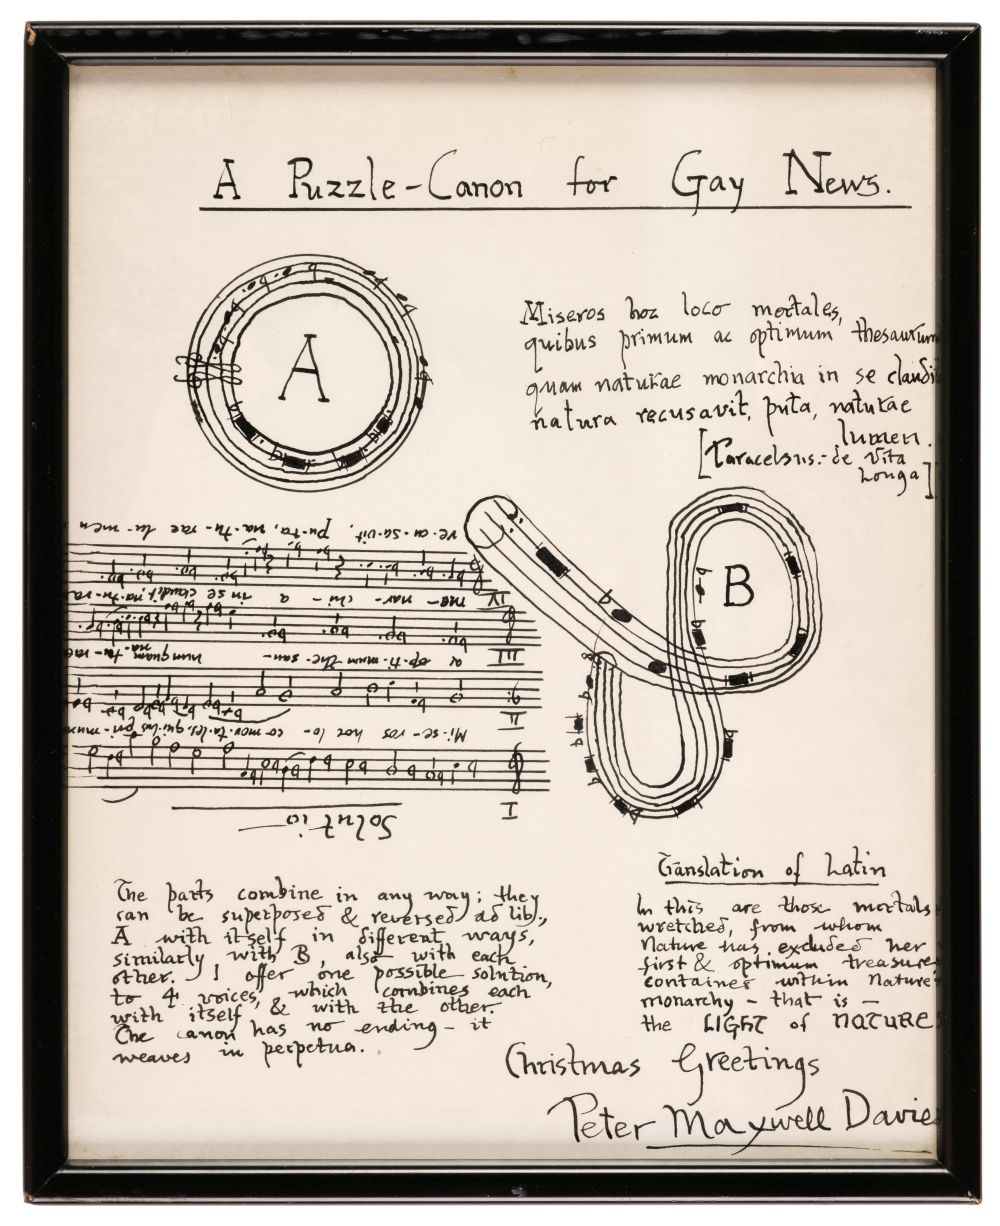 A Puzzle-Canon for Gay News.
A
Miseros hoc loco mortales,
quibus primum ac optimum thesaurum
quam naturae monarchia in se claudit
natura recusavit, puta, naturae
lumen.
[Paracelsus:- de Vita
Longa]
B
re-cu-sa-vit, pu-ta, na-tu-rae lu-men
IV
mo-nar-chi-a in se claudit, na-tu-ra
III
ac op-ti-mum the-sau- numquam na-tu-rae
II
Mi-se-ros hoc lo-co mor-ta-les, qui-bus pri-mum
I
Solutio
The parts combine in any way; they
can be superposed & reversed ad lib.,
A with itself in different ways,
similarly with B, also with each
other. I offer one possible solution,
to 4 voices, which combines each
with itself, & with the other.
The canon has no ending - it
weaves in perpetua.
Translation of Latin
In this are those mortals
wretched, from whom
Nature has excluded her
first & optimum treasure
contained within Nature's
monarchy - that is -
the LIGHT of NATURE
Christmas Greetings
Peter Maxwell Davies